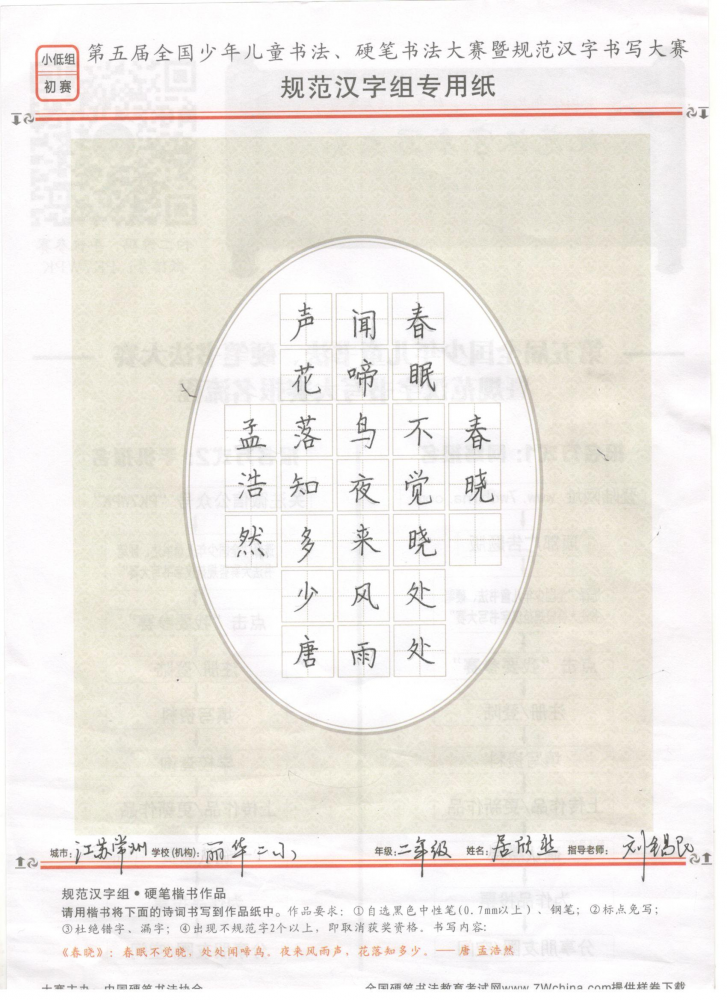 小低组
初赛
第五届全国少年儿童书法、硬笔书法大赛暨规范汉字书写大赛
规范汉字组专用纸
春晓
春眠不觉晓处处
闻啼鸟夜来风雨
声花落知多少唐
孟浩然
城市：江苏常州 学校(机构)：丽华二小 年级：二年级 姓名：居欣然 指导老师：刘锡民
规范汉字组•硬笔楷书作品
请用楷书将下面的诗词书写到作品纸中。作品要求：①自选黑色中性笔(0.7mm以上)、钢笔；②标点免写；
③杜绝错字、漏字；④出现不规范字2个以上，即取消获奖资格。书写内容：
《春晓》：春眠不觉晓，处处闻啼鸟。夜来风雨声，花落知多少。——唐 孟浩然